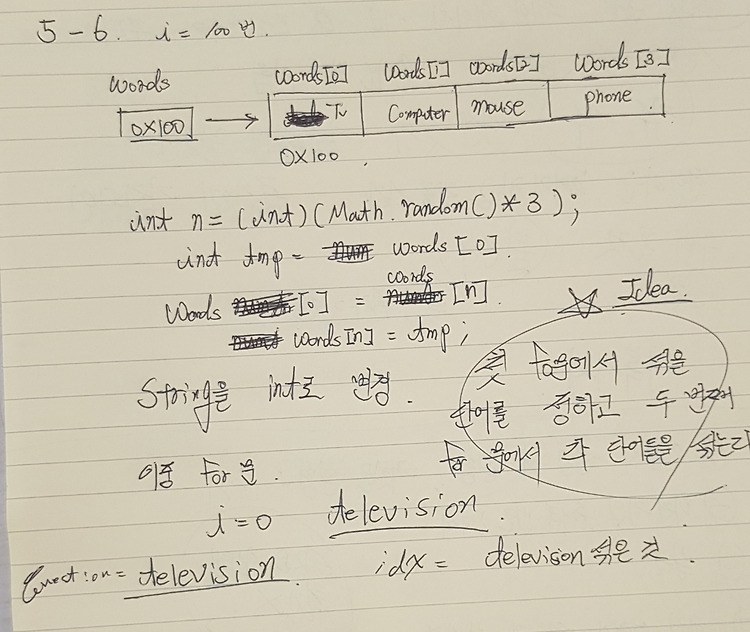 5-6. i = 100번.
words words[0] words[1] words[2] words[3]
0x100 → Tv Computer mouse phone
0x100.
int n = (int)(Math.random()*3);
int tmp = words[0].
words[0] = words[n].
words[n] = tmp;
☆ Idea.
첫 for문에서 섞을
단어를 정하고 두 번째
for 문에서 각 단어들을 섞는다
String을 int로 변경.
이중 for문.
i=0 television.
question = television. idx = television 섞은 것.